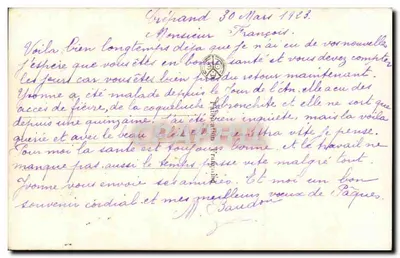 Trépand 30 Mars 1903.
Monsieur François.
Voila bien longtemps déja que je n'ai eu de vos nouvelles
J'éspère que vous êtes en bonne santé et vous devez compter
les jours car vous êtes bien près du retour maintenant.
Yvonne a été malade depuis le Jour de l'An. elle a eu des
accès de fièvre, de la coqueluche bronchite et elle ne sort que
depuis une quinzaine. J'ai été bien enquiète, mais la voila
guérie et avec le beau vite je pense.
Pour moi la santé est toujours bonne, et le travail ne
manque pas. aussi le temps passe vite malgré tout.
Yvonne vous envoie ses amitiés. Et moi un bon
souvenir cordial et mes meilleurs vœux de Pâques.
M. Baudon